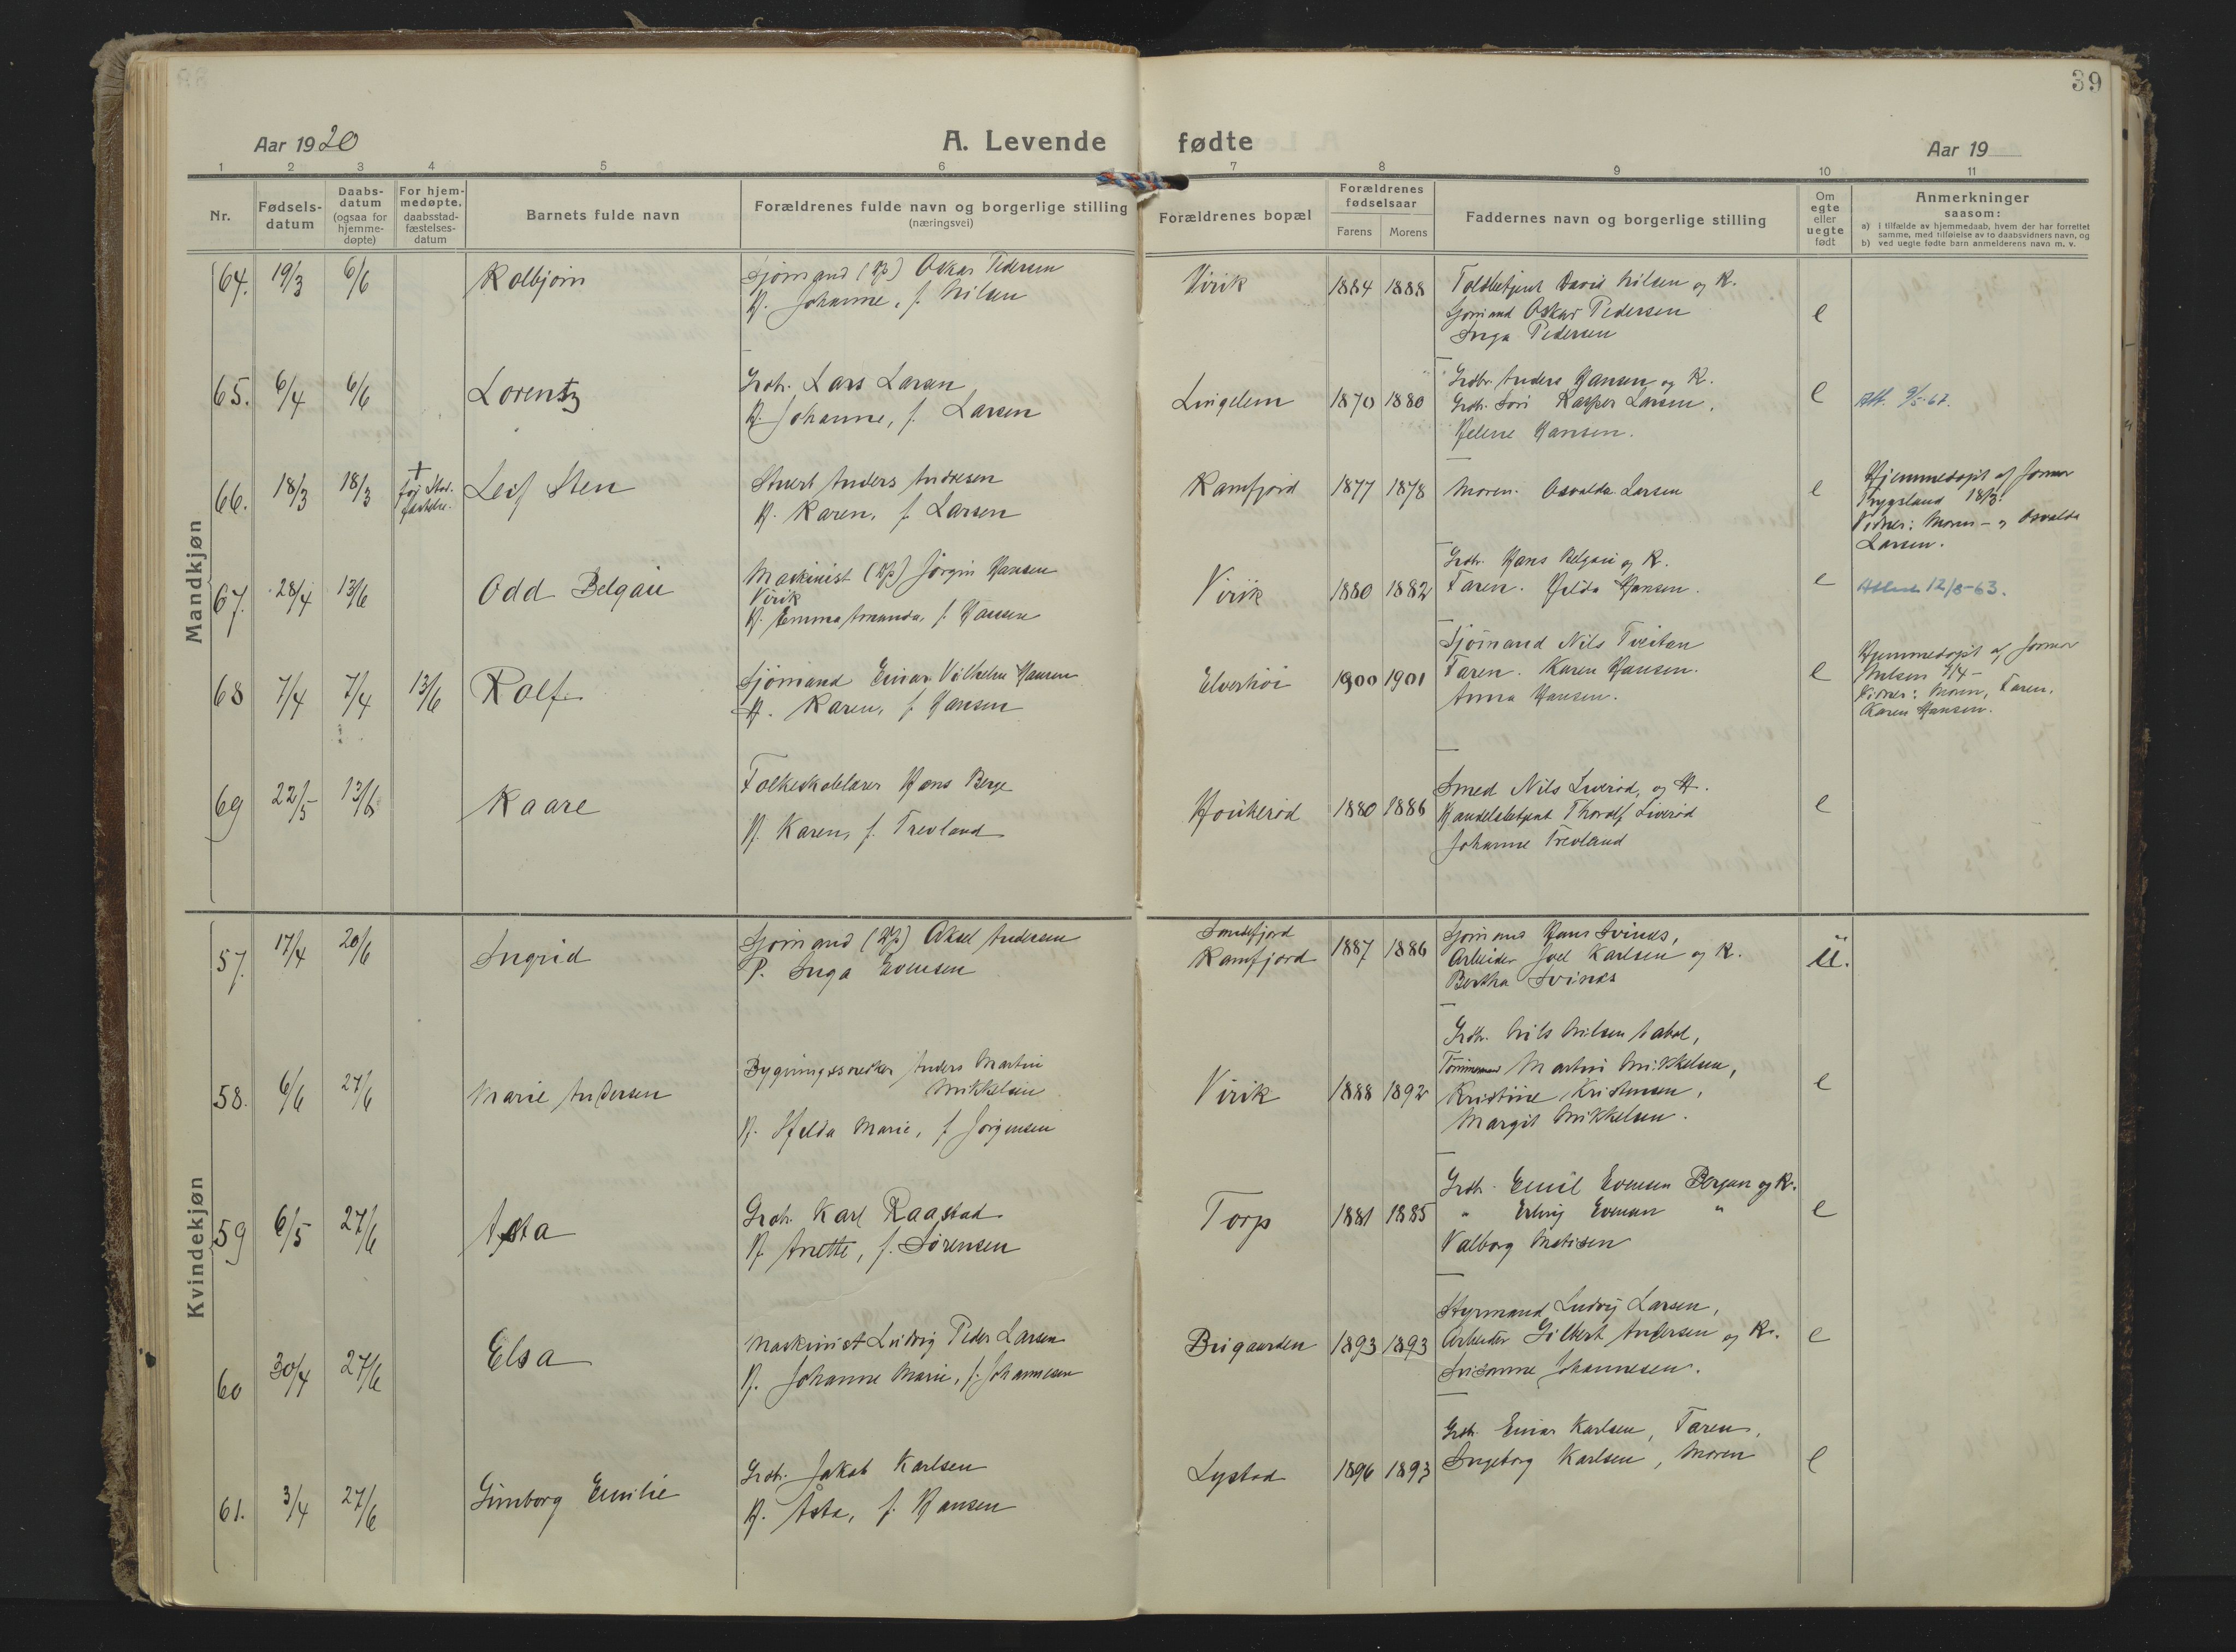 39
Aar 1920
A. Levende fødte
Aar 19
1 2 3 4 5 6 7 8 9 10 11
Nr.
Fødsels-
datum
Daabs-
datum
(ogsaa for
hjemme-
døpte)
For hjem-
medøpte.
daabsstad-
fæstelses-
datum
Barnets fulde navn
Forældrenes fulde navn og borgerlige stilling
(næringsvei)
Forældrenes bopæl
Forældrenes
fødselsaar
Farens Morens
Faddernes navn og borgerlige stilling
Om
egte
eller
uegte
født
Anmerkninger
saasom:
a) i tilfælde av hjemmedaab, hvem der har forrettet
samme, med tilføielse av to daabsvidners navn, og
b) ved uegte fødte barn anmelderens navn m. v.
Mandkjøn
64. 19/3 6/6 Kolbjørn
Sjømand Oskar Pedersen
H. Johanne, f. Nilsen
Virik 1884 1888
Toldbetjent David Nilsen og K.
Sjømand Oskar Pedersen
Inga Pedersen
e
65. 6/4 6/6 Lorentz
Grdbr. Lars Larsen
H. Johanne, f. Larsen
Lingelem 1870 1880
Grdbr. Anders Hansen og K.
Grdbr. Kasper Larsen,
Helene Hansen.
e
Att. 9/5-67.
66. 18/3 18/3 †
før Stad-
fæstelse.
Leif Sten
Stuert Anders Andresen
H. Karen, f. Larsen
Kamfjord 1877 1878
Moren. Osvalda Larsen
e
Hjemmedøpt af Jormor
Trygsland 18/3.
Vidner: Moren - og Osvalda
Larsen.
67. 28/4 13/6 Odd Belgau
Maskinist Jørgin Hansen
Virik
H. Emma Amanda, f. Hansen
Virik 1880 1882
Grdbr. Hans Belgau og K.
Faren. Hilda Hansen.
e
Attest 12/8-63.
68 7/4 7/4 13/6 Rolf
Sjømand Einar Vilhelm Hansen
H. Karen, f. Hansen
Elverhöi 1900 1901
Sjømand Nils Tveitan
Faren. Karen Hansen.
Anna Hansen.
e
Hjemmedøpt af Jormor
Nilsen 7/4 -
Vidner: Moren, Faren,
Karen Hansen.
69 22/5 13/6 Kaare
Folkeskolelærer Hans Berge
H. Karen, f. Trevland
Haukerød 1880 1886
Smed Nils Liverød, og H.
Handelsbetjent Thoralf Liverød
Johanne Trevland
e
Kvindekjøn
57. 17/4 20/6 Ingrid
Sjømand Aksel Andersen
P. Inga Evensen
Sandefjord
Kamfjord 1887 1886
Sjømand Hans Svinås,
Arbeider Joel Karlsen og K.
Bertha Svinås
ü.
58. 6/6 27/6 Marie Andersen
Bygningssnedker Anders Martin
Mikkelsen
H. Hilda Marie, f. Jørgensen
Virik 1888 1892
Grdbr. Nils Nilsen
Tømmermand Martin Mikkelsen,
Kristine Kristensen,
Margit Mikkelsen.
e
59 6/5 27/6 Asta
Grdbr. Karl Raastad
H. Anette, f. Sørensen
Torp 1881 1885
Grdbr. Emil Evensen Bergan og K.
" Erling Evensen "
Valborg Matisen
e
60 30/4 27/6 Elsa
Maskinist Ludvig Peder Larsen
H. Johanne Marie, f. Johannesen
Brigaarden 1893 1893
Styrmand Ludvig Larsen,
Arbeider Gilbert Andersen og K.
Susanne Johannesen.
e
61. 3/4 27/6 Gunborg Emilie
Grdbr. Jakob Karlsen
H. Asta, f. Hansen
Lystad 1896 1893
Grdbr. Einar Karlsen, Faren,
Ingeborg Karlsen, Moren
e